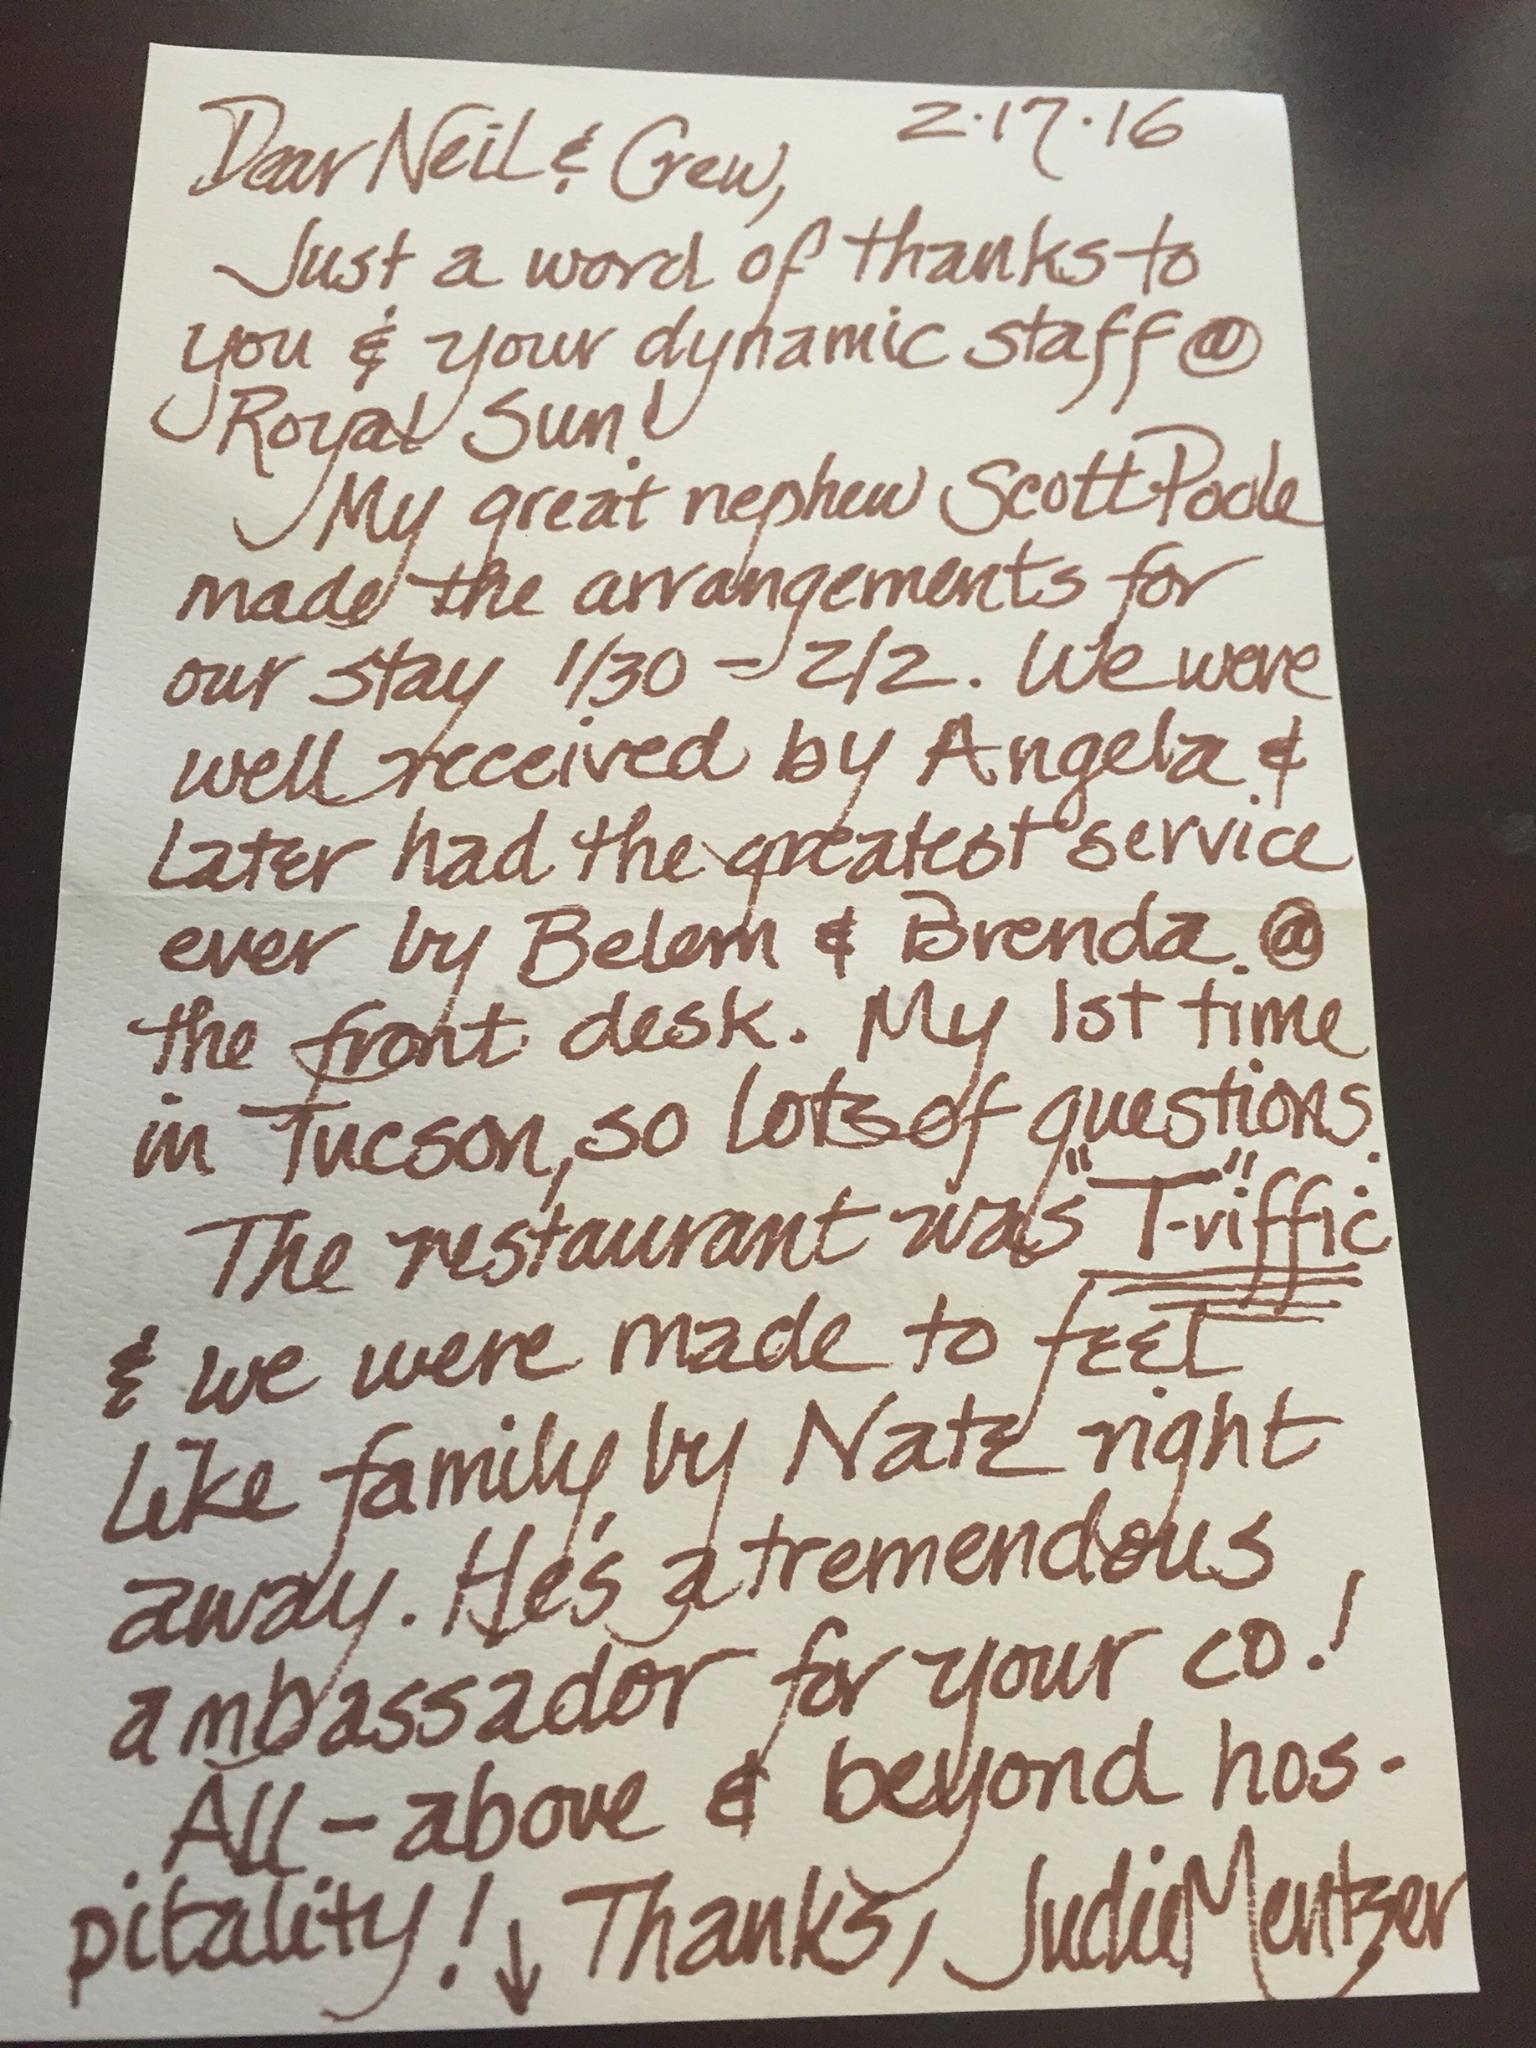 2.17.16
Dear Neil & Crew,
Just a word of thanks to
you & your dynamic staff @
Royal Sun!
My great nephew Scott Poole
made the arrangements for
our stay 1/30 - 2/2. We were
well received by Angela &
later had the greatest service
ever by Belem & Brenda @
the front desk. My 1st time
in Tucson, so lots of questions.
The restaurant was "T-riffic"
& we were made to feel
like family by Nate right
away. He's a tremendous
ambassador for your co!
All - above & beyond hos-
pitality! ↓ Thanks, Judie Mentzer